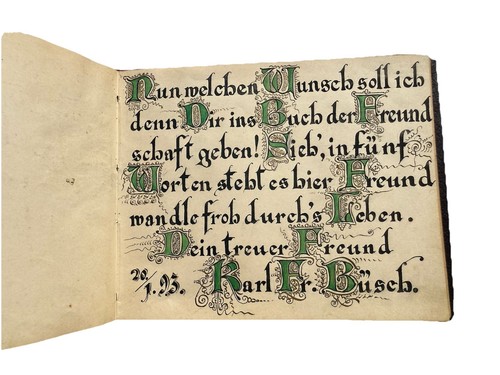 Nun welchen Wunsch soll ich
denn Dir ins Buch der Freund
schaft geben! Sieh', in fünf
Worten steht es hier Freund
wandle froh durch's Leben.
Dein treuer Freund
20/1. 93. Karl Fr. Büsch.